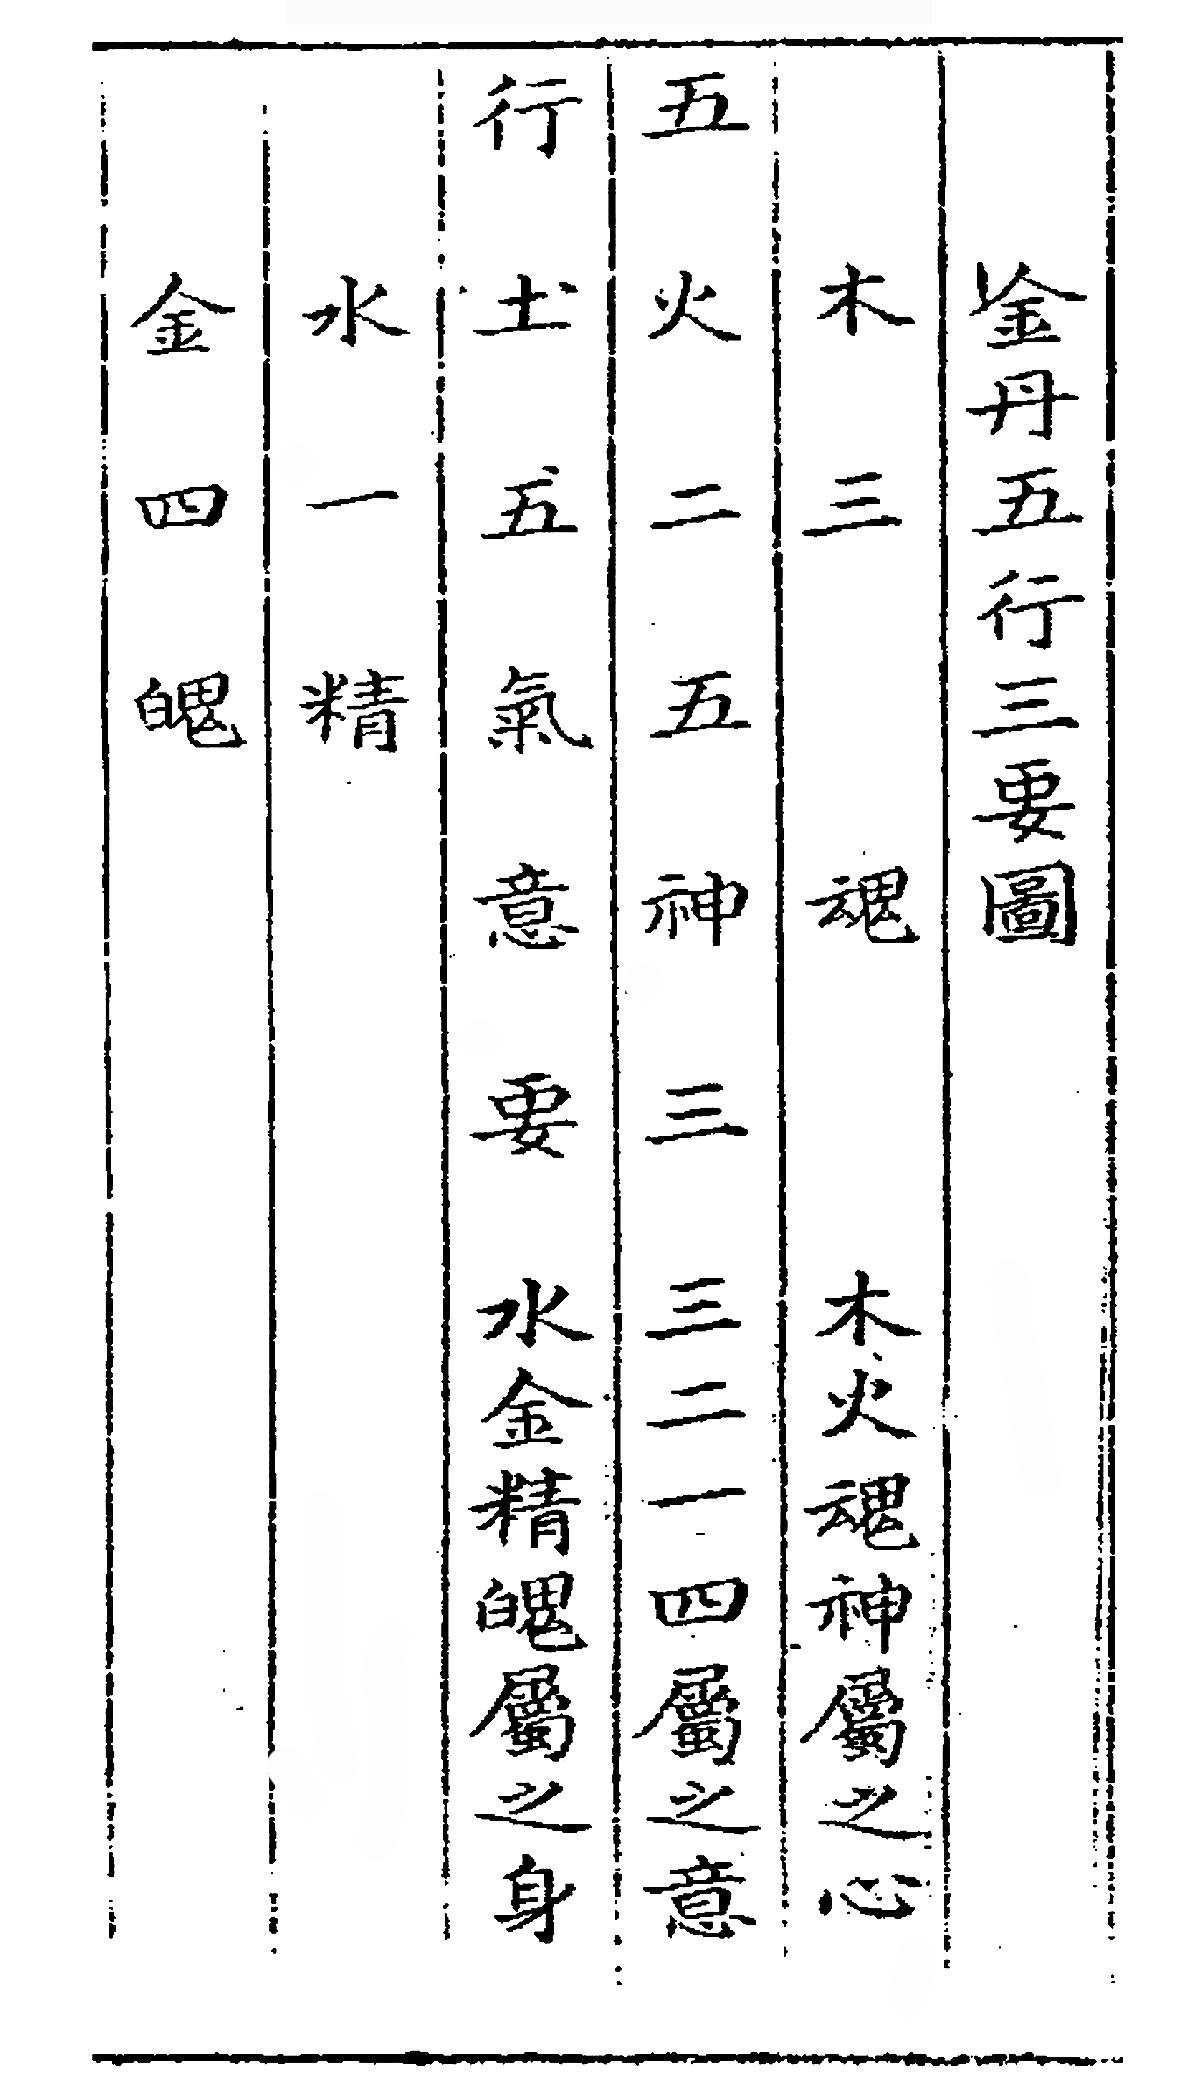 金丹五行三要圖
木三魂木火魂神屬之心
五火二五神三三二一四屬之意
行土五氣意要水金精魄屬之身
水一精
金四魄